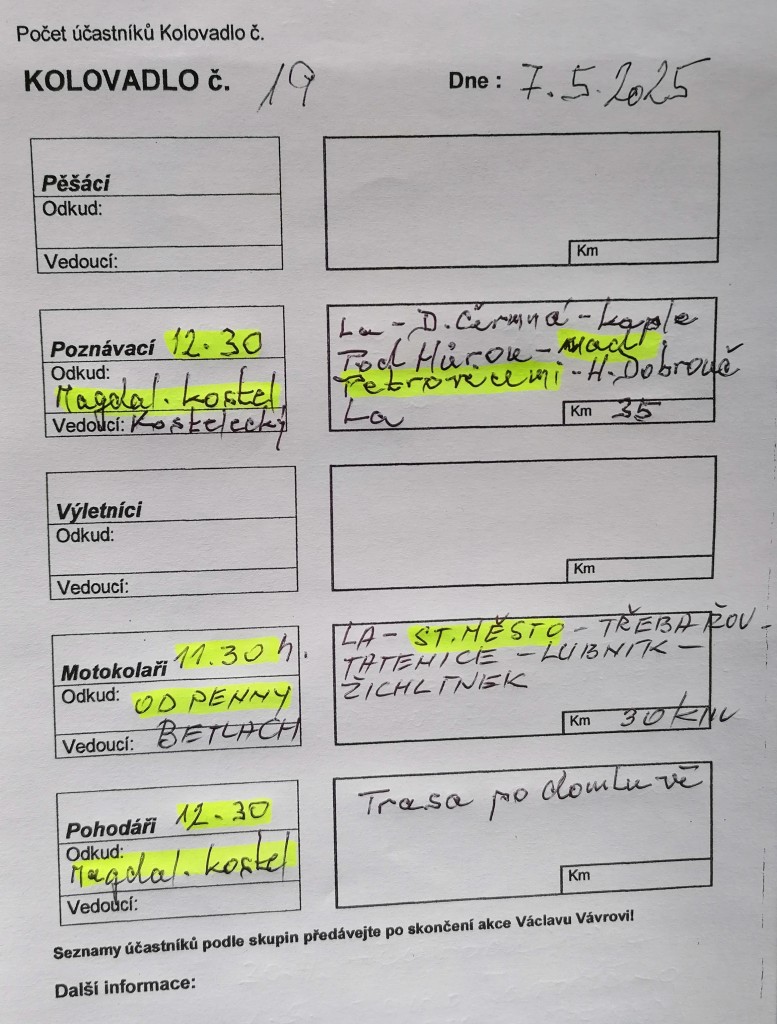 Počet účastníků Kolovadlo č.
KOLOVADLO č. 19 Dne : 7.5.2025
Pěšáci
Odkud:
Vedoucí:
Km
Poznávací 12.30
Odkud:
Magdal. kostel
Vedoucí: Kostelecký
La - D. Čermná - kaple
Pod Hůrou - nad
Petrovicemi - H. Dobrouč
La
Km 35
Výletníci
Odkud:
Vedoucí:
Km
Motokolaři 11.30 h.
Odkud: OD PENNY
Vedoucí: BETLACH
LA - ST. MĚSTO - TŘEBAŘOV -
TATENICE - LUBNÍK -
ŽICHLÍNEK
Km 30 km
Pohodáři 12.30
Odkud:
Magdal. kostel
Vedoucí:
Trasa po domluvě
Km
Seznamy účastníků podle skupin předávejte po skončení akce Václavu Vávrovi!
Další informace: